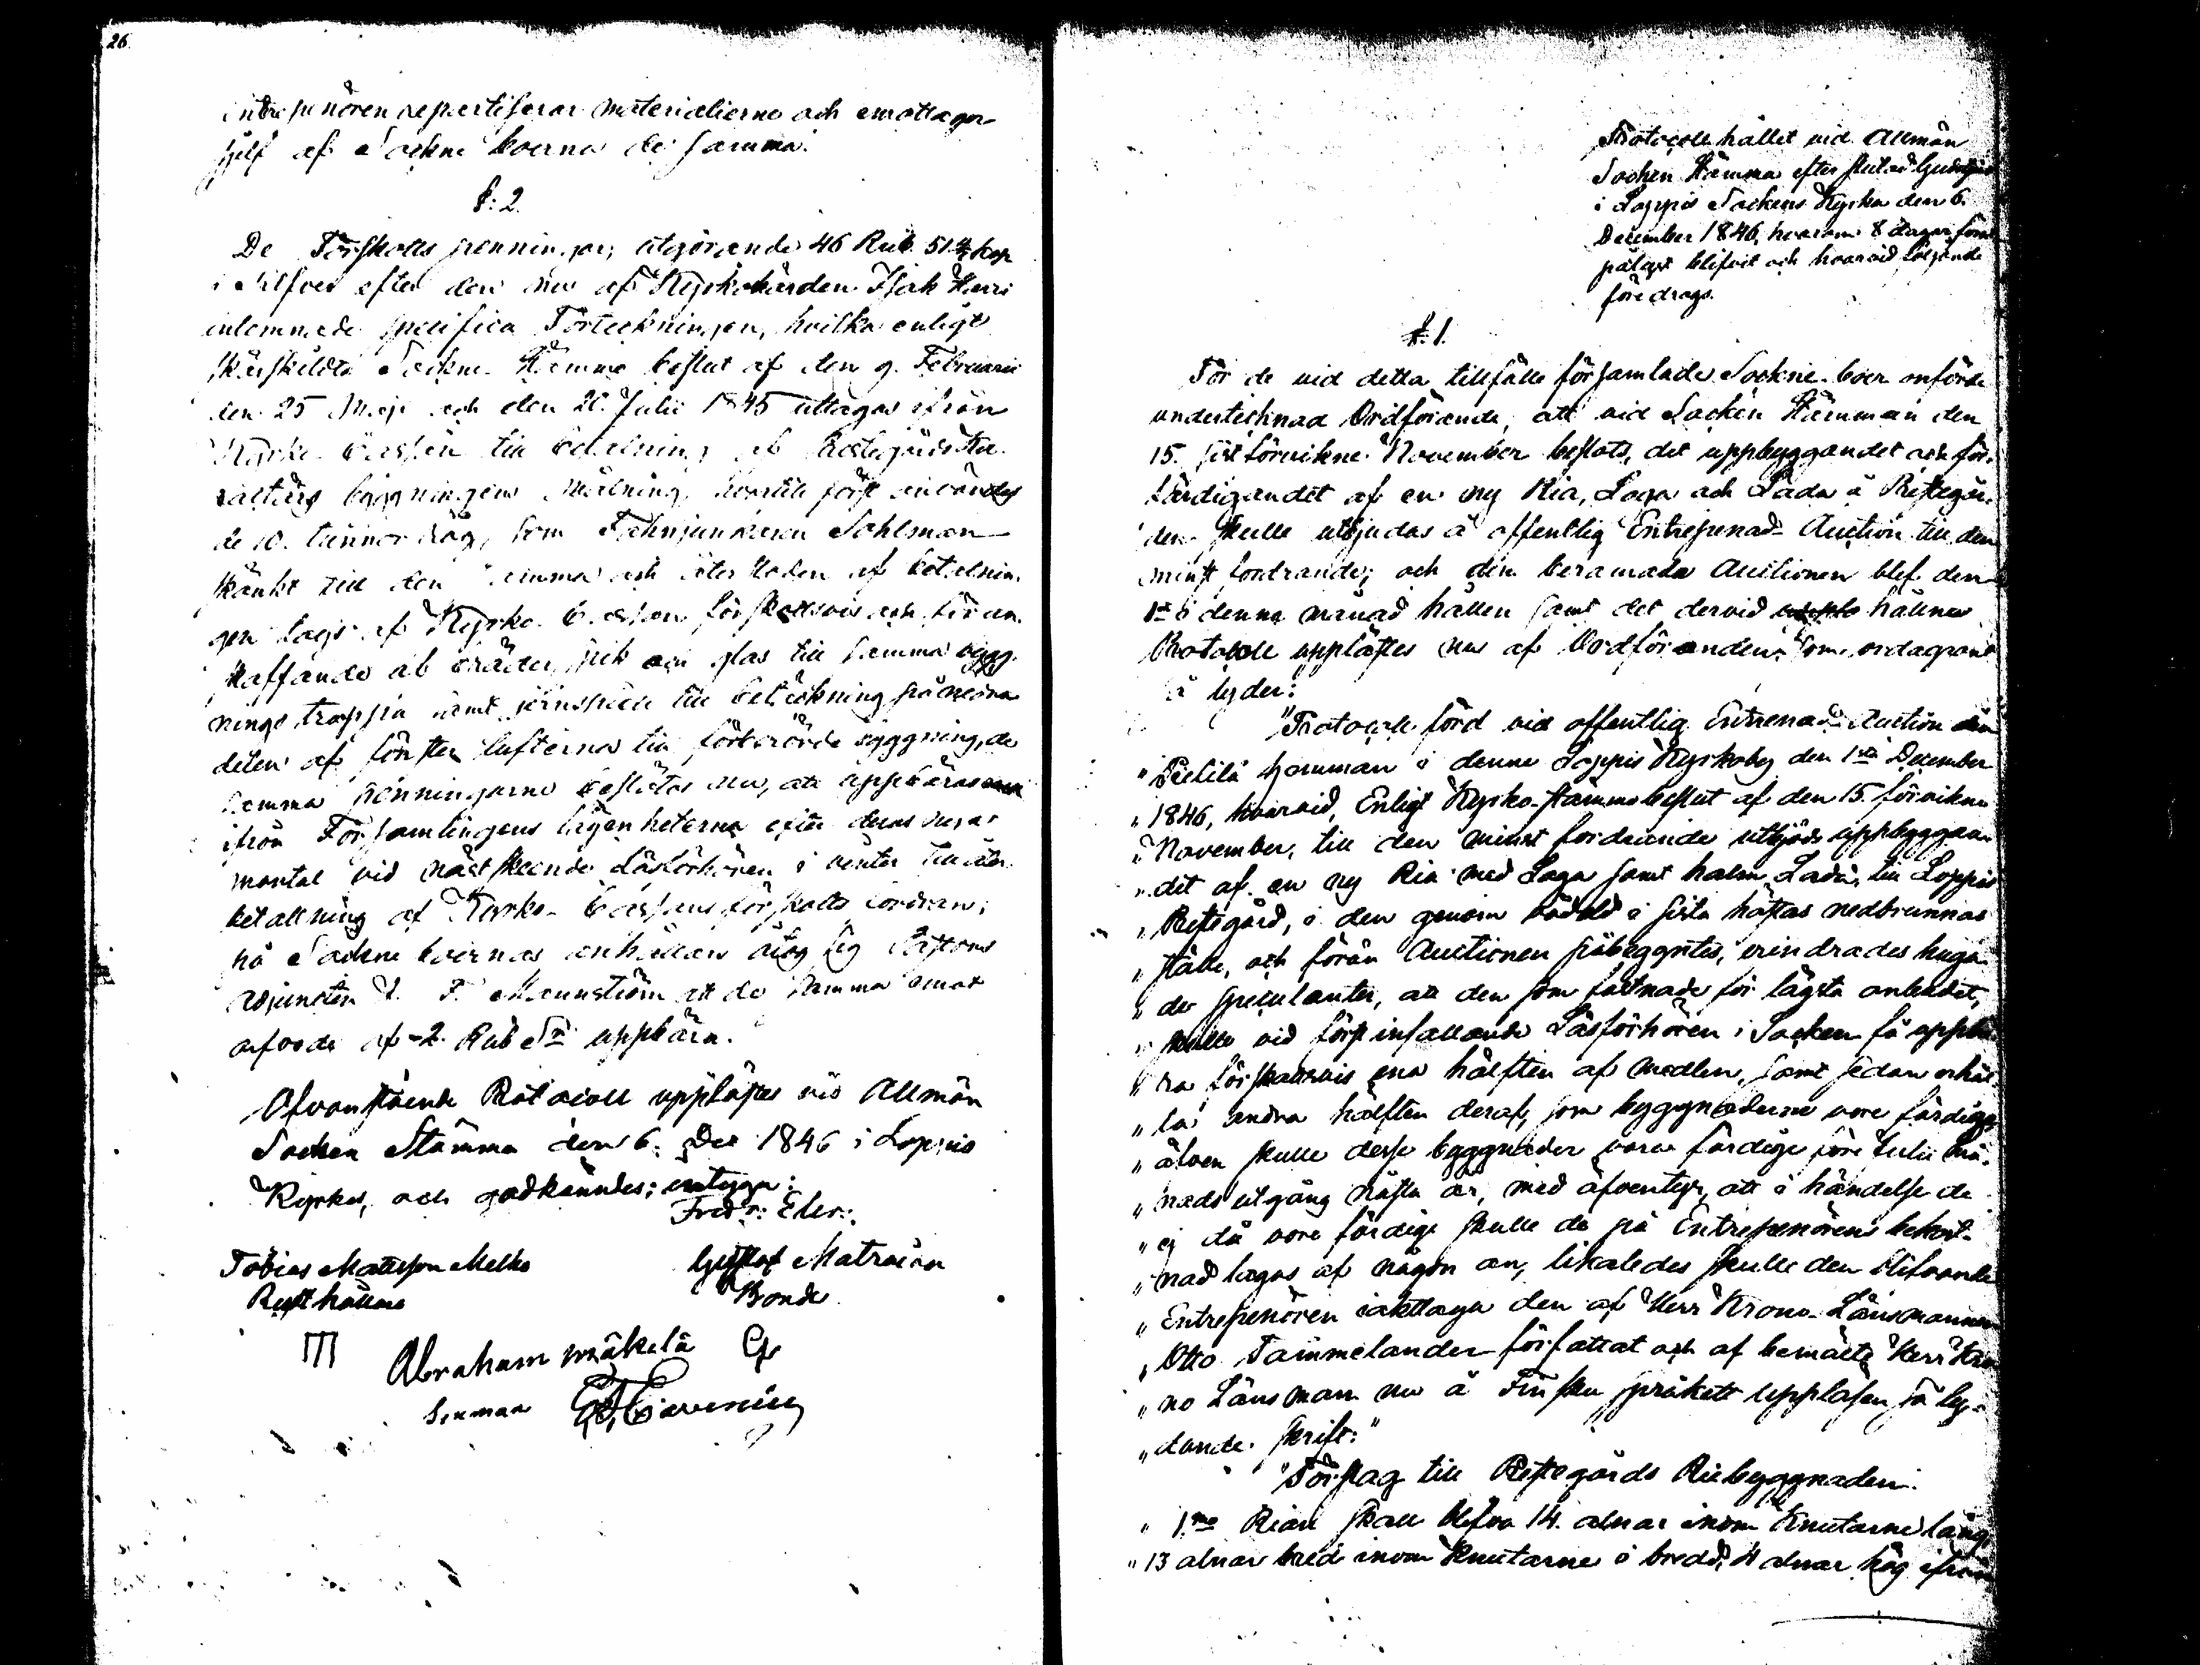 26.
Entreprenören repartiserar materialierne och emottager
sjelf af Sockne boerna de samma.
§: 2.
De Förskotts penningar, utgörande 46 Rub. 51 4/7 kop
i Silfver efter den nu af Kyrkovärden Isak Harri
inlemnade specifica Förteckningen, hvilka enligt
särskildta Sockne Stämmo beslut af den 9. Februarii
den 25 Maji och den 20. Julii 1845 uttagas ifrån
Kyrko Cassan till betalning af Prestgårds Ka-
raktärs byggningens målning, hvartill först användes
de 10. tunnor råg, som Fahnjunkaren Sahlman
skänkt till den samma och återstoden af betalnin-
gen togs af Kyrko Cassan förskottsvis och för an-
skaffande af bräder, spik och glas till samma bygg-
nings trappa samt jernspjell till betäckning på nedra
delen af fönster lufterna till förberörde byggning, de
samma penningarne beslötos nu, att uppbäras
ifrån Församlingens lägenheterna efter deras
mantal vid nästskeende Läsförhören i vinter till åter-
betallning af Kyrko-Cassans förskotts fordran;
på Sockne boernas anhållan åtog sig Pastors
adjuncten J. F. Mennström att de samma emot
arfvode af 2. Rub Sr uppbära.
Ofvanstående Protocoll upplästes vid Allmän
Socken Stämma den 6. Dec 1846 i Loppis
Kyrka, och godkändes; intyga:
Fredr: Elers.
Tobias Mattsson Melko Gustaf Matroinn
Rusthållare Bonde
Abraham mäkelä
Sexman
Protocoll hållet vid Allmän
Socken Stämma efter slutad Gudstjenst
i Loppis Sockens Kyrka den 6.
December 1846, hvarom 8 dagar förut
pålyst blifvit och hvarvid följande
föredrogs.
§: 1.
För de vid detta tillfälle församlade Sockne boer anförde
undertecknad Ordförande, att vid Socken Stämman den
15. sistförvikne November beslöts, det uppbyggandet och för-
färdigandet af en ny Ria, Loga och Lada å Prestegår-
den skulle utbjudas å offentlig Entreprenad-Auction till den
minst fordrande; och den beramada Auctionen blef den
1ste i denna månad hållen samt det dervid hållna
Protocoll upplästes nu af Ordföranden, som ordagrant
så lyder:
"Protocoll förd vid offentlig Entrenad-Auction å
"Pietilä hemman i denne Loppis Kyrkoby den 1sta December
"1846, hvarvid, Enligt Kyrko-stämmo beslut af den 15. förvikne
"November, till den minst fordrande utbjöds uppbyggan-
"det af en ny Ria med Loga samt halm Lada, till Loppis
"Prestegård, i den genom vådeld i sista höstas nedbrunnas
"ställe, och förän Auctionen påbegyntes, erindrades huga-
"de speculanter, att den som fastnade för lägsta anbudet,
"skulle vid först infallande Läsförhören i Socken få uppbä-
"ra förskottsvis ena hälften af medlen, samt sedan erhål-
"la andra hälften deraf, som byggnaderne vore färdige,
"älven skulle desse byggnader vara färdige före Julii må-
"nads utgång nästa år, med äfventyr, att i händelse de
"ej då vore färdige skulle de på Entreprenörens bekost-
"nad lagas af någon an, likaledes skulle den blifvande
"Entreprenören iakttaga den af Herr Krono-Länsmannen
"Otto Tammelander författat och af bemälte Herr Kro-
"no Länsman nu å Finska språkett upplåsen så ly-
"dande skrift:"
"Förslag till Prestegårds Riebyggnaden.
"1.mo Rian skall blifva 14. alnar inom Knutarne lång,
"13 alnar bred inom Knutarne i bredd, 4 alnar hög ifrån